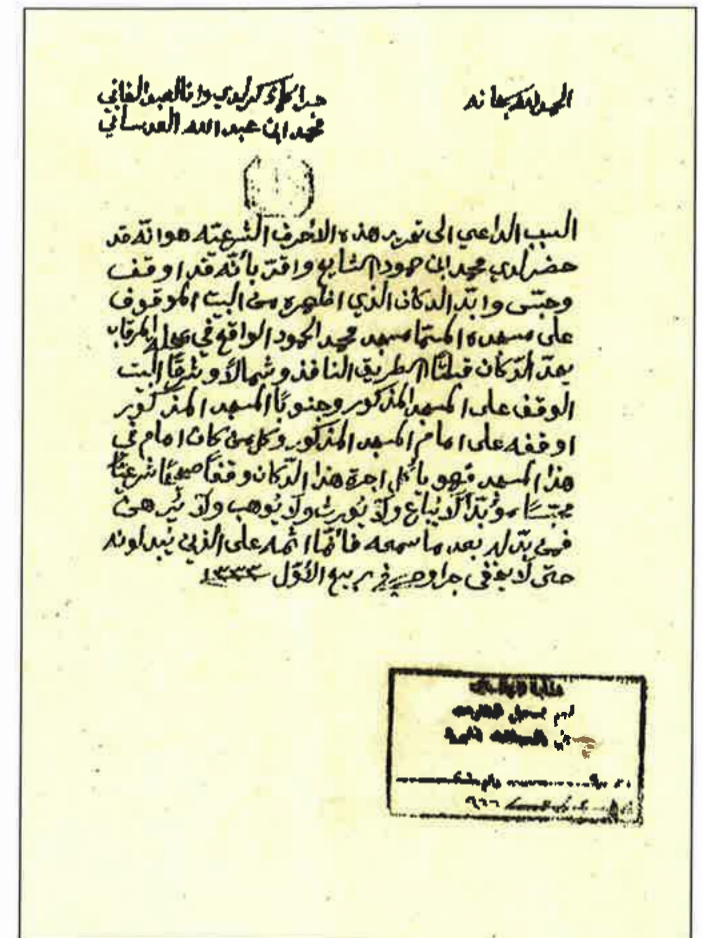 الحمد لله سبحانه
جرا كما ذكر لدي وانا العبد الفاني
محمد ابن عبد الله العدساني
السبب الداعي الى تحرير هذه الاحرف الشرعيّه هو انّه قد
حضر لدي محمد ابن حمود الشايع واقرّ بأنّه قد اوقف
وحبّس وابّد الدكان الذي اظهره من البيت الموقوف
على مسجده المسمّا مسجد محمد الحمود الواقع في محلة المرقاب
يحدّ الدّكان قبلتًا الطريق النافذ وشمالاً وشرقًا البيت
الوقف على المسجد المذكور وجنوبًا المسجد المذكور
اوقفه على امام المسجد المذكور وكل من كان امام في
هذا المسجد فهو يأكل اجرة هذا الدّكان وقفًا صحيحًا شرعيًّا
محبّسًا مؤبّدًا لا يُباع ولا يُورث ولا يُوهب ولا يُرهن
فمن بدّله بعد ما سمعه فانّما اثمه على الذين يُبدلونه
حتى لا يخفى جرا وحرر في ربيع الأوّل ١٣٣٣